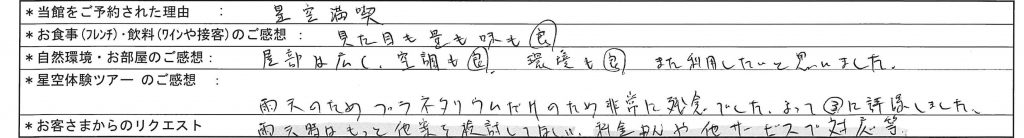 ＊当館をご予約された理由 ： 星空満喫
＊お食事(フレンチ)・飲料(ワインや接客)のご感想 ： 見た目も量も味も
＊自然環境・お部屋のご感想 ： 部屋は広く、空調も 環境も また利用したいと思いました。
＊星空体験ツアー のご感想 ：
雨天のためプラネタリウムだけのため非常に残念でした。よって③に評価しました。
＊お客さまからのリクエスト 雨天時はもっと他案を検討してほしい。料金めんや他サービスで対応等。